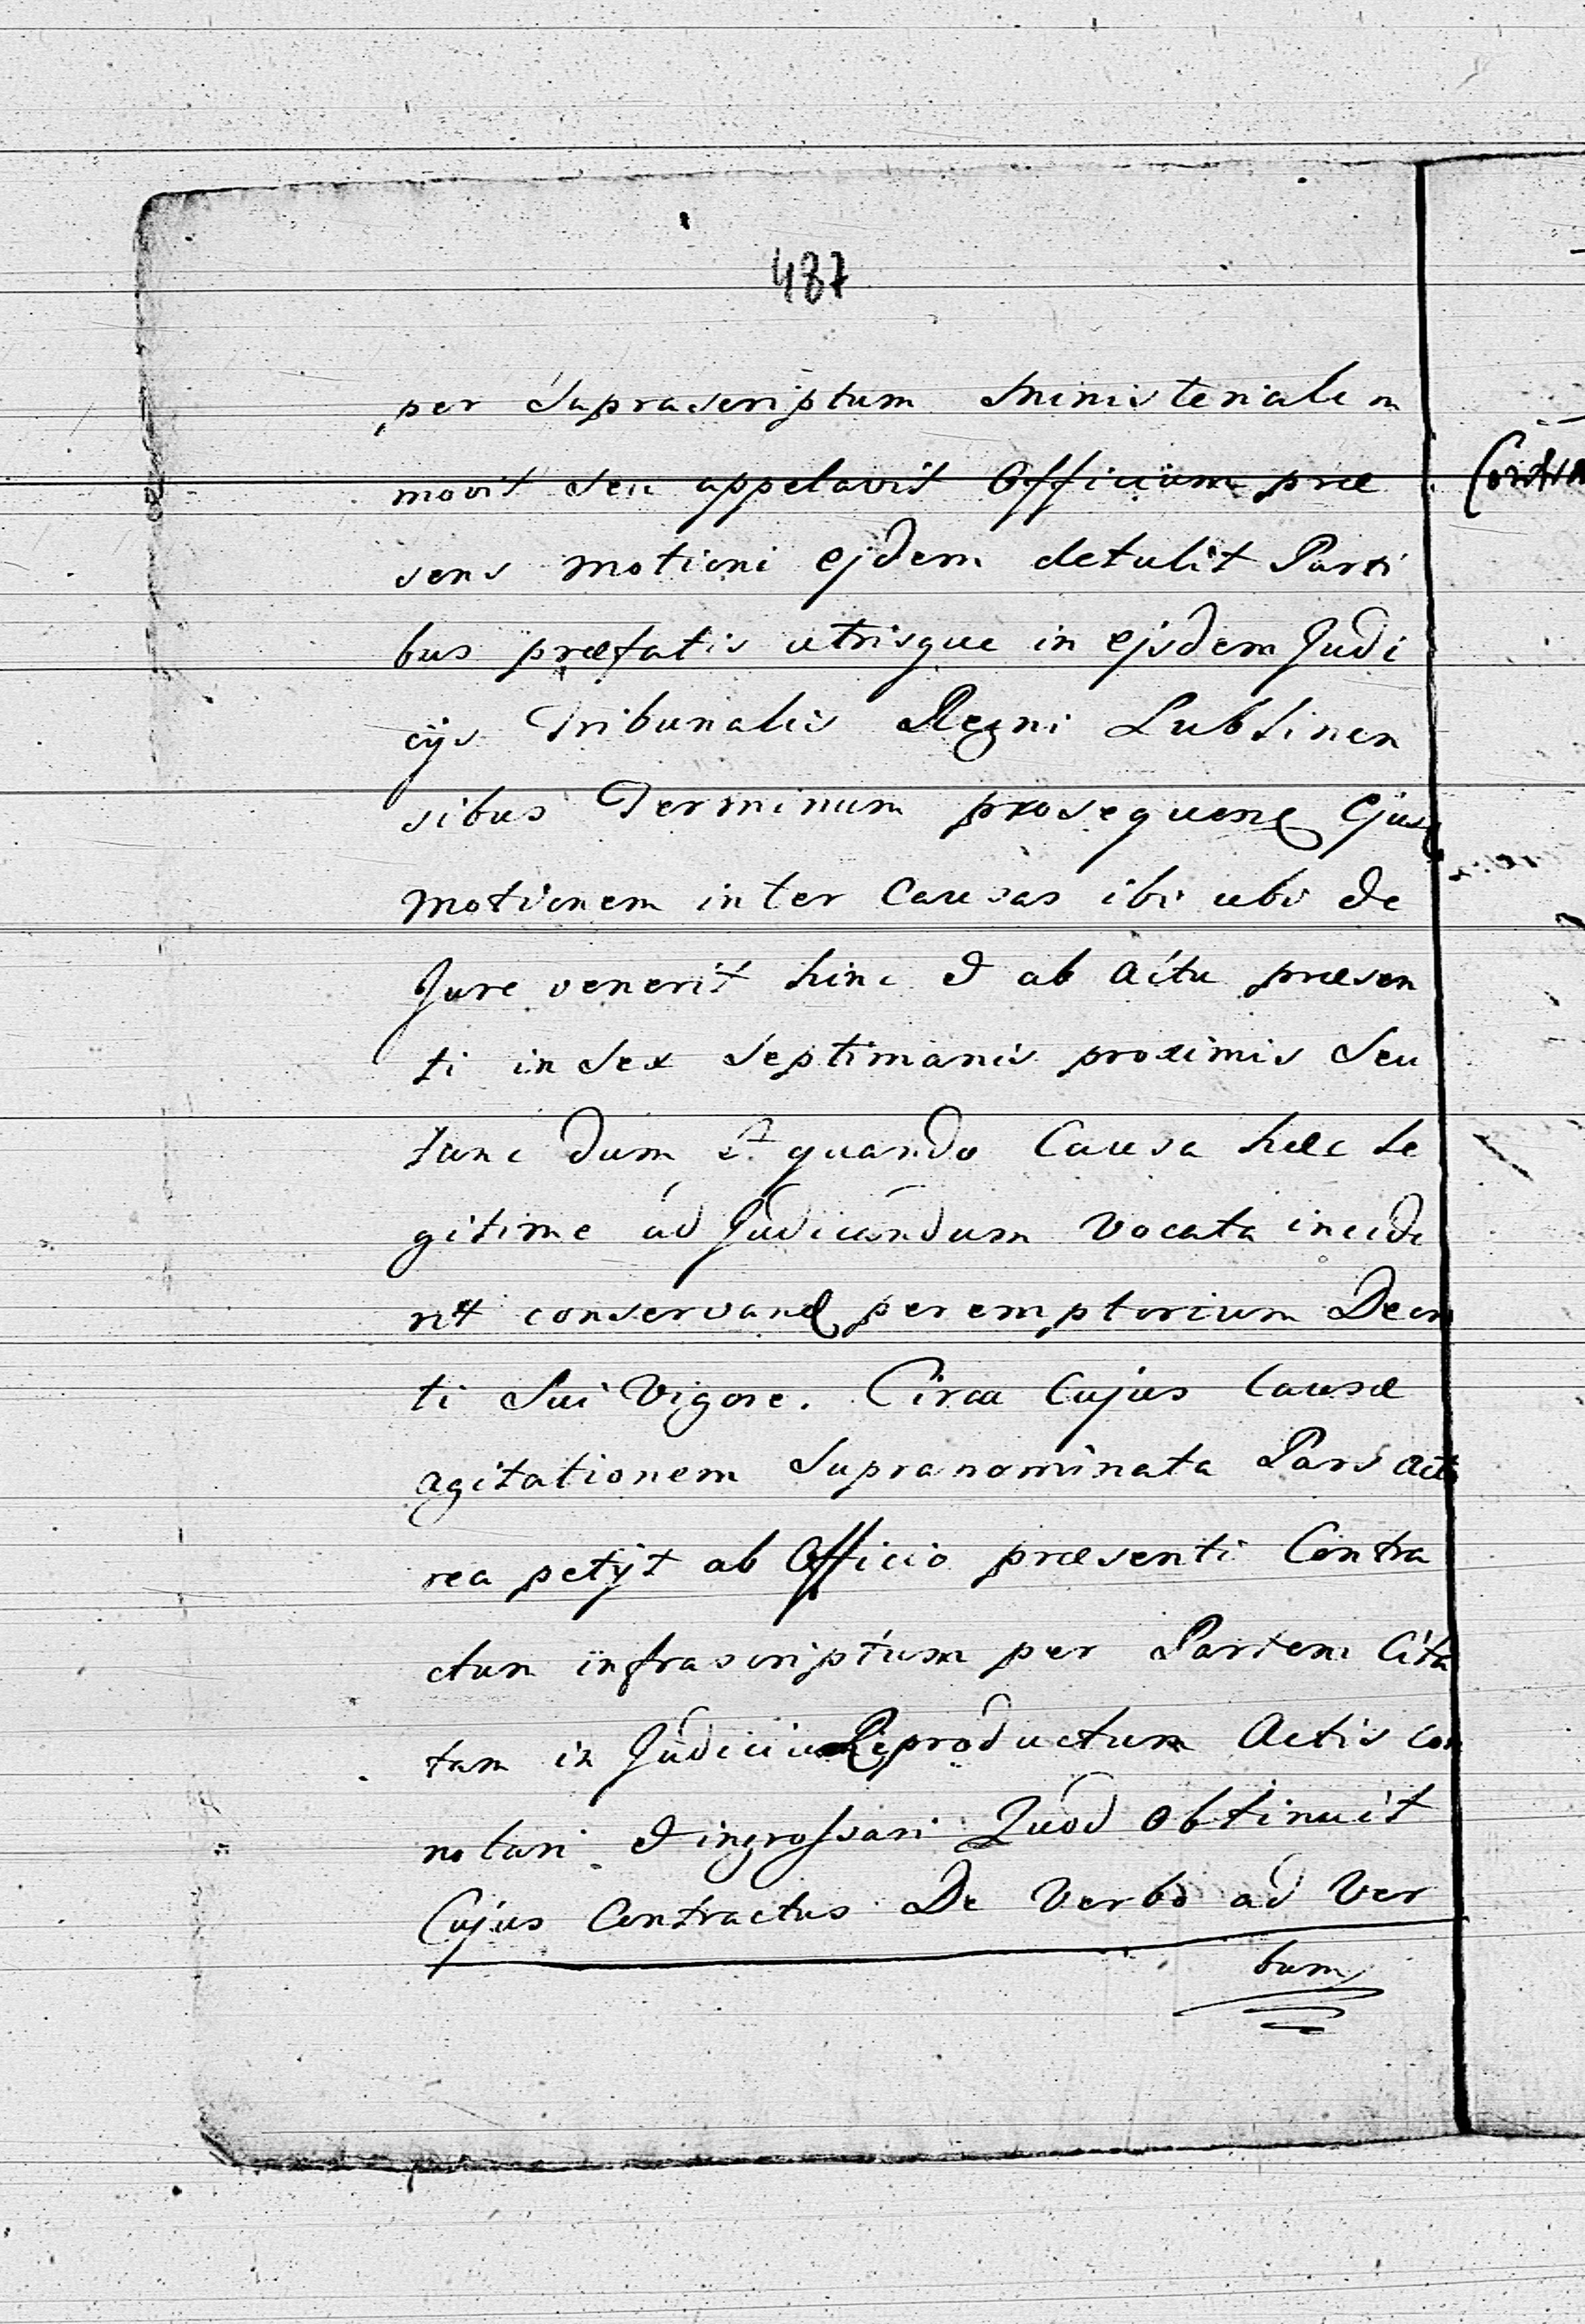 487
per Suprascriptum Ministerialem
movit seu appelavit Officium præ
sens motioni ejdem detulit Parti
bus præfatis utrisque in ejsdem Judi
cÿs Tribunalis Regni Lublinen
sibus Terminum prosequend Ejusd
motionem inter Causas ibi ubi de
Jure venerit hinc et ab actu præsen
ti in Sex Septimanis proximis Seu
tunc dum et quando Causa hæc le
gitime ad Judicandum vocata incide
rit conservand peremptorium Decre
ti Sui Vigore. Circa Cujus Causæ
agitationem Supranominata Pars Acto
rea petÿt ab Officio præsenti Contra
ctum infrascriptum per Partem Cita
tam in Judicium Reproductum Actis con
notari et ingrossari Quod obtinuit
Cujus Contractus De Verbo ad Ver
bum